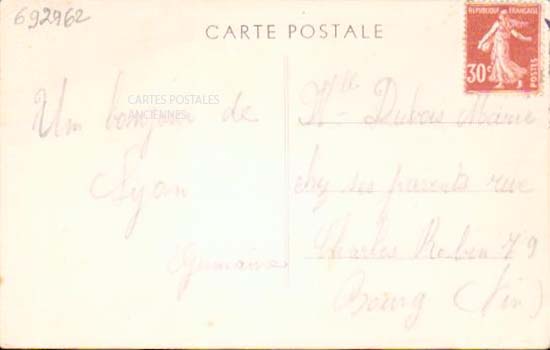 692962
CARTE POSTALE
REPUBLIQUE FRANÇAISE
30c
POSTES
CARTES POSTALES
ANCIENNES
Un bonjour de
Lyon
Germaine
Mlle Dubois Marie
chez ses parents rue
Charles Robin 79
Bourg (Ain)